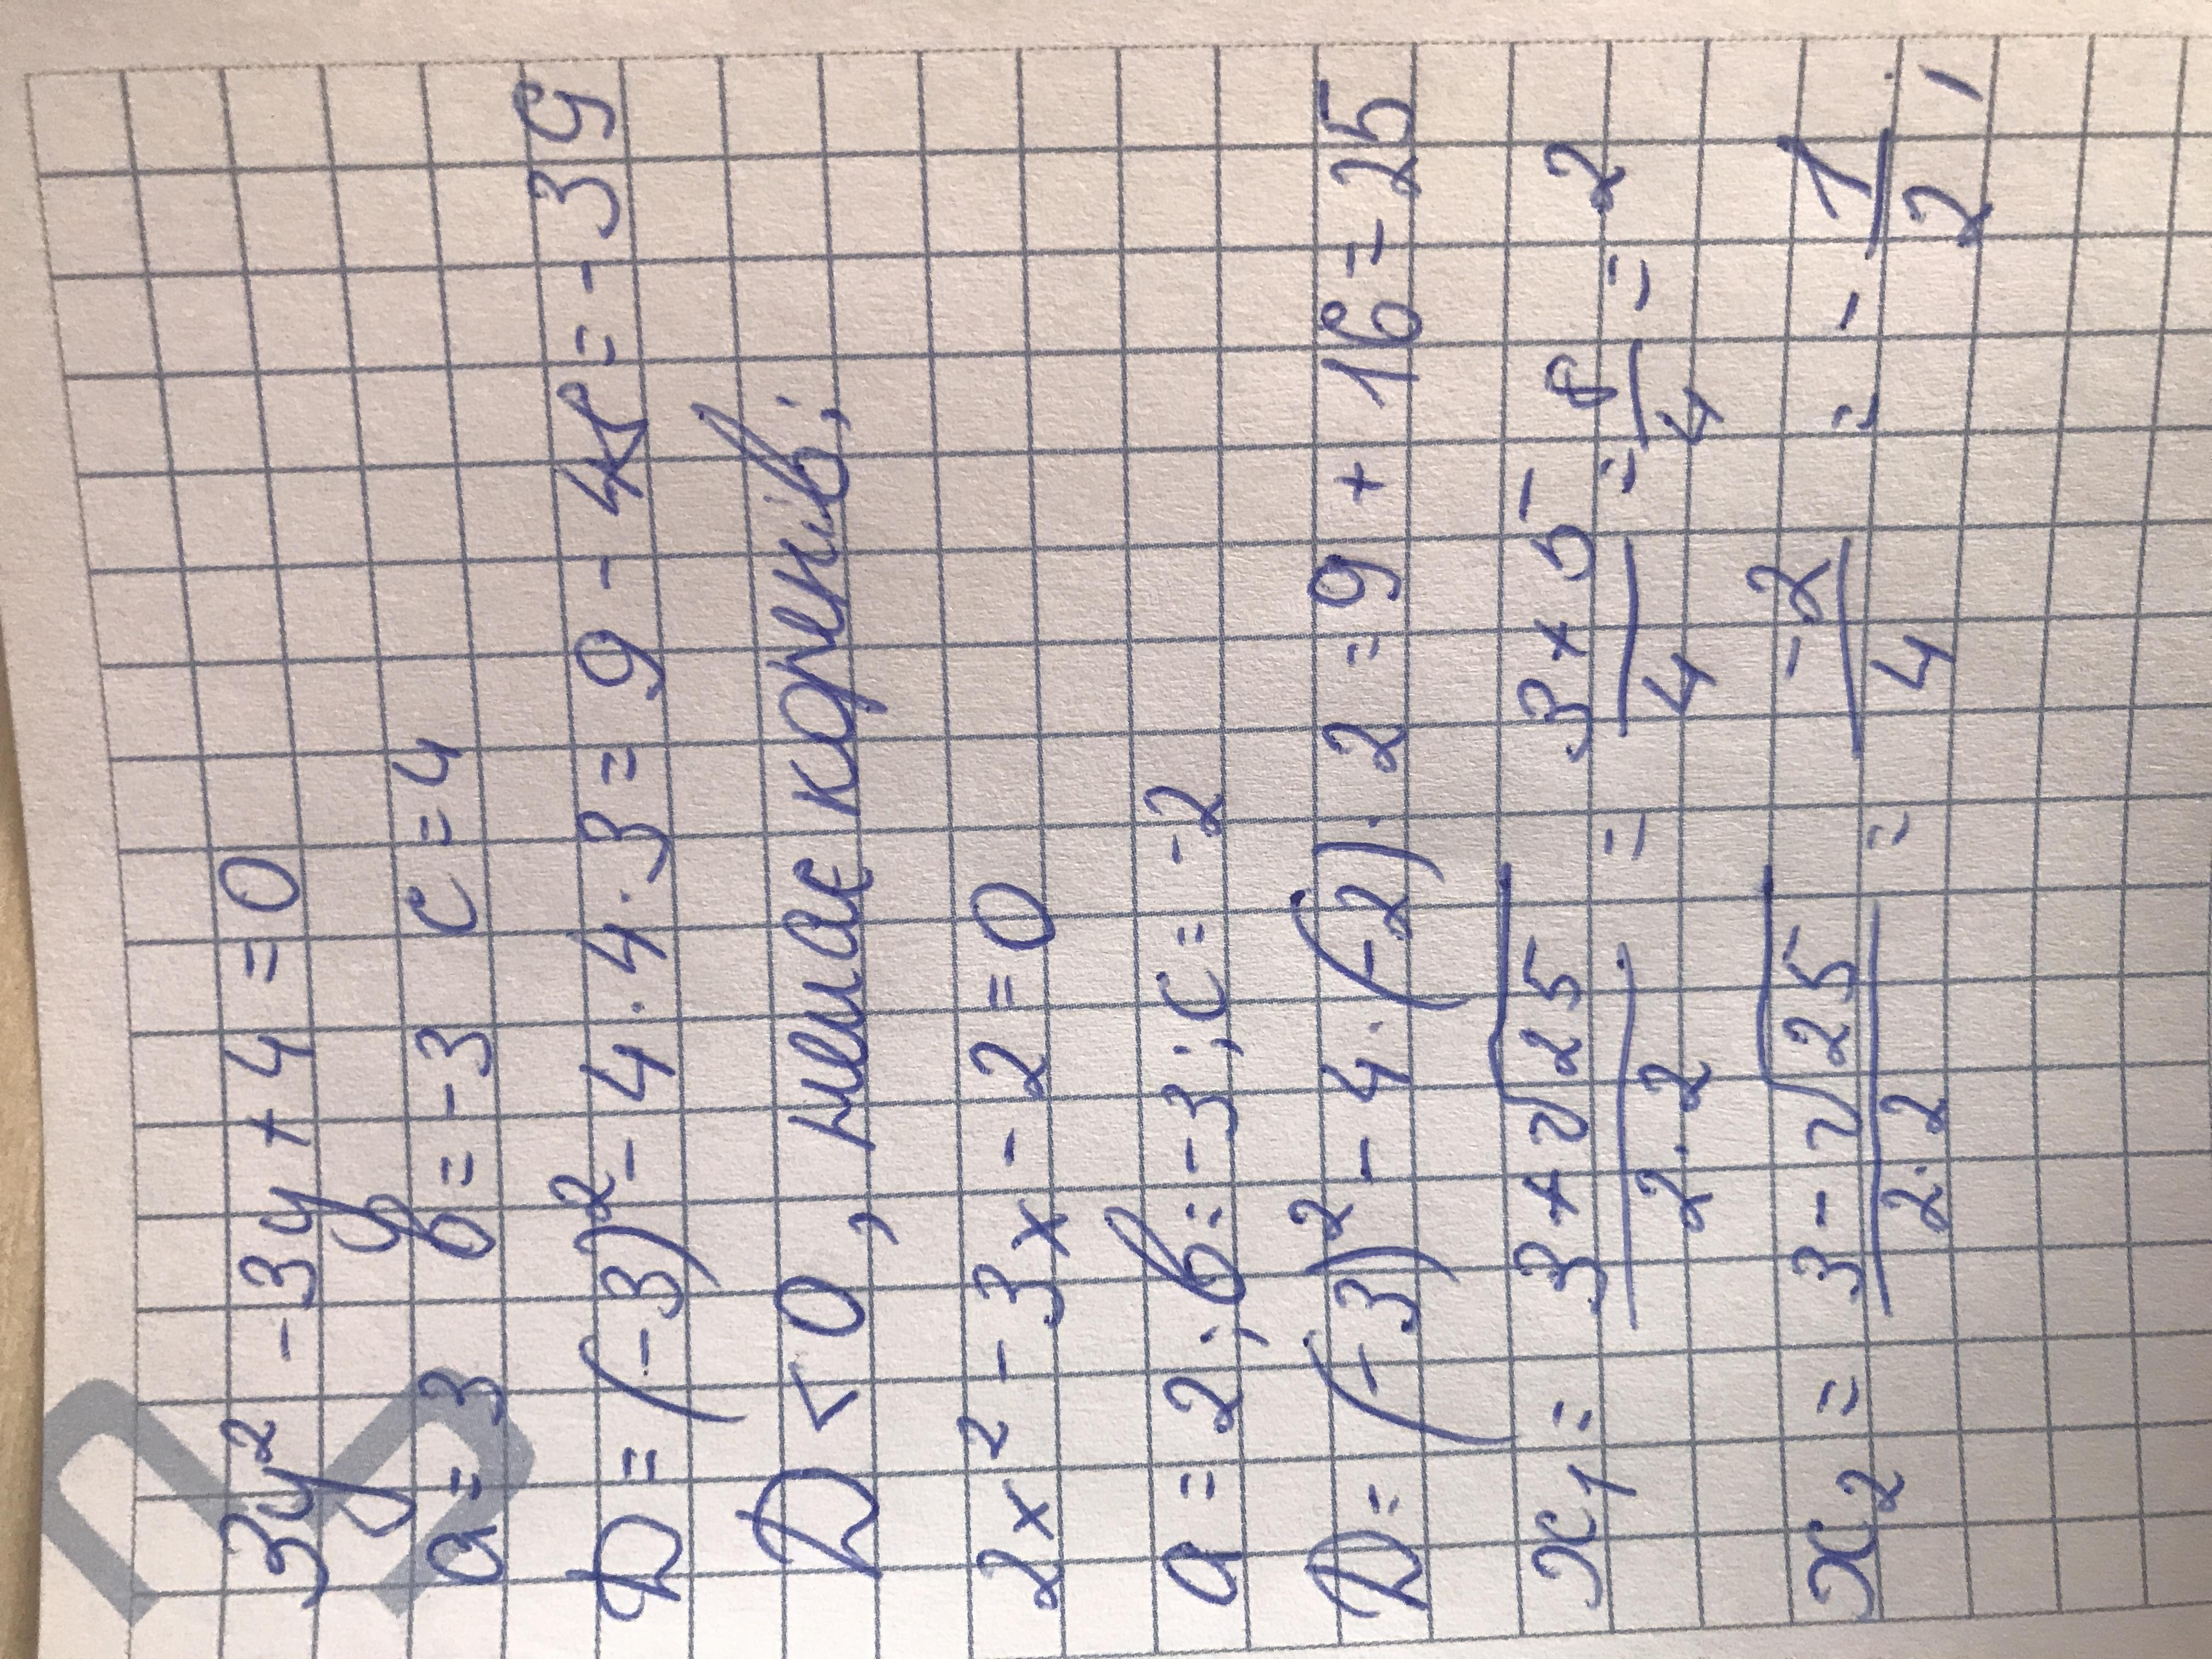 3y² - 3y + 4 = 0
a = 3 в = -3 c = 4
D = (-3)² - 4 · 4 · 3 = 9 - 48 = - 39
D < 0, немає коренів;
2x² - 3x - 2 = 0
a = 2; в = -3; c = -2
D = (-3)² - 4 · (-2) · 2 = 9 + 16 = 25
x₁ = (3 + √25)/(2 · 2) = (3 + 5)/4 = 8/4 = 2
x₂ = (3 - √25)/(2 · 2) = (-2)/4 = - 1/2;